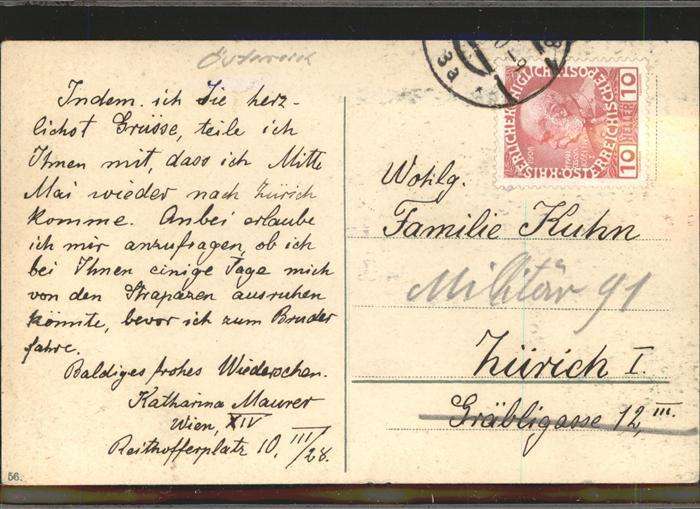 Österreich
Indem ich Sie herz-
lichst Grüsse, teile ich
Ihnen mit, dass ich Mitte
Mai wieder nach Zürich
komme. Anbei erlaube
ich mir anzufragen, ob ich
bei Ihnen einige Tage mich
von den Strapazen ausruhen
könnte, bevor ich zum Bruder
fahre.
Baldiges frohes Wiedersehen.
Katharina Maurer
Wien, XIV
Reithofferplatz 10, III/28.
56.
3a
10
HELLER
10
KAISERLICHE KÖNIGLICHE ÖSTERREICHISCHE POST
Wohlg.
Familie Kuhn
Militär 91
Zürich I.
Gräbligasse 12, III.